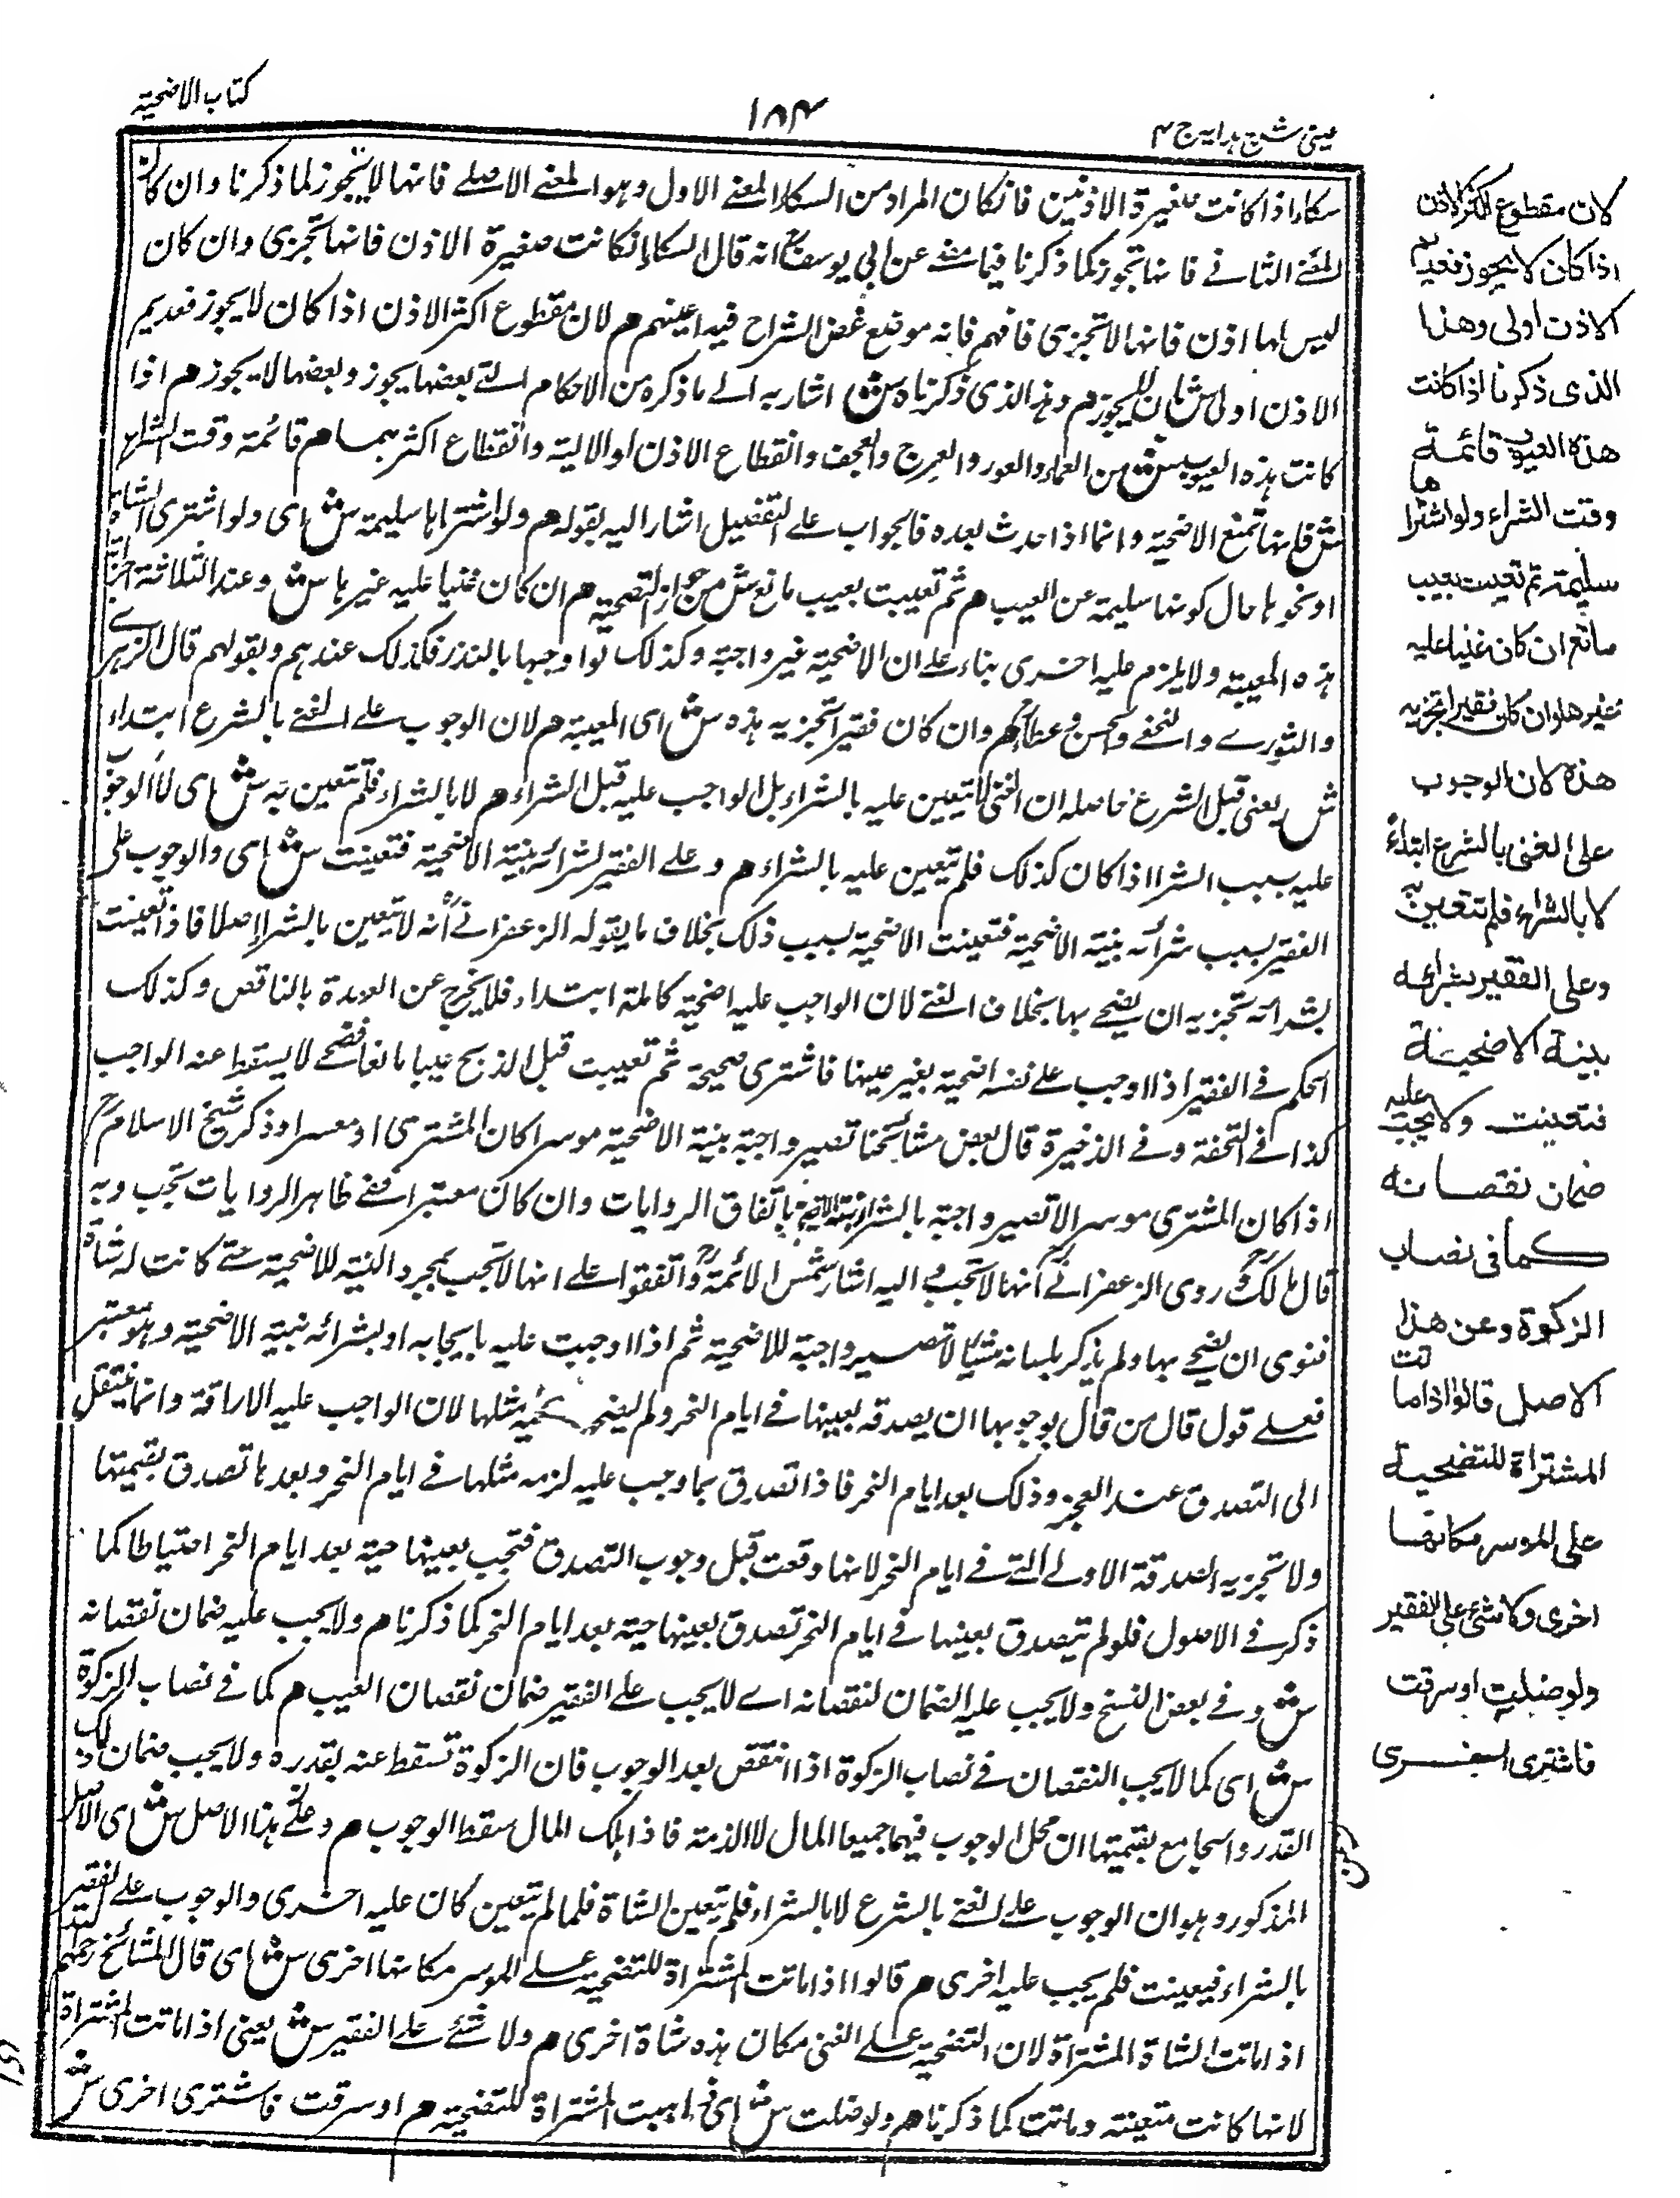 كتاب الاضحية
١٨٤
عينى شرح هدايه ج ٤
سكاء اذا كانت صغيرة الاذنين فان كان المراد من السكاء المعنى الاول وهو المعنى الاصلى فانها لا يجوز لما ذكرنا وان كان
المعنى الثانى فانها تجوز كما ذكرنا فيما مضى عن ابى يوسف رح انه قال السكاء انكانت صغيرة الاذن فانها تجزى وان كان
ليس لها اذن فانها لا تجزى فافهم فانه موضع غمض الشراح فيه اعينهم م لان مقطوع اكثر الاذن اذا كان لا يجوز فعديم
الاذن اولى ش ان لا يجوز م وهذا الذى ذكرناه ش اشار به الى ما ذكره من الاحكام التى بعضها يجوز وبعضها لا يجوز م اذا
كانت هذه العيوب ش من العماء والعور والعرج والعجف وانقطاع الاذن او الالية وانقطاع اكثرهما م قائمة وقت الشراء
ش فانها تمنع الاضحية وانما اذا حدث بعده فالجواب على التفصيل اشار اليه بقوله م ولو اشتراها سليمة ش اى ولو اشترى الشاة
او نحوها حال كونها سليمة عن العيب م ثم تعيبت بعيب مانع ش من جواز التضحية م ان كان غنيا عليه غيرها ش وعند الثلاثة
هذه المعيبة ولا يلزم عليه اخرى بناء على ان الاضحية غير واجبة وكذلك لو اوجبها بالنذر فكذلك عندهم وبقولهم قال الزهرى
والثورى والنخعى والحسن وعطاء م وان كان فقيرا تجزيه هذه ش اى المعيبة م لان الوجوب على الغنى بالشرع ابتداء
ش يعنى قبل الشرع حاصله ان الغنى لا يتعين عليه بالشراء بل الواجب عليه قبل الشراء م لا بالشراء فلم تتعين به ش اى لان الوجوب
عليه بسبب الشرا اذا كان كذلك فلم يتعين عليه بالشراء م وعلى الفقير لشرائه بنية الاضحية فتعينت ش اى والوجوب على
الفقير بسبب شرائه بنية الاضحية فتعينت الاضحية بسبب ذلك بخلاف ما يقوله الزعفرانى انه لا يتعين بالشراء اصلا فاذا تعينت
بشرائه تجزيه ان يضحى بها بخلاف الغنى لان الواجب عليه اضحية كاملة ابتداء فلا يخرج عن العهدة بالناقص وكذلك
الحكم فى الفقير اذا اوجب على نفسه اضحية بغير عينها فاشترى صحيحة ثم تعيبت قبل الذبح عيبا مانعا فضحى لا يسقط عنه الواجب
كذا فى التحفة وفى الذخيرة قال بعض مشائخنا تصير واجبة بنية الاضحية موسرا كان المشترى او معسرا وذكر شيخ الاسلام رح
اذا كان المشترى موسرا لا تصير واجبة بالشراء بنية الاضحية باتفاق الروايات وان كان معتبرا ففى ظاهر الروايات تجب وبه
قال مالك رح وروى الزعفرانى رح انها لا تجب واليه اشار شمس الائمة رح واتفقوا على انها لا تجب بمجرد النية للاضحية حتى كانت له شاة
فنوى ان يضحى بها ولم يذكر بلسانه شيئا لا تصير واجبة للاضحية ثم اذا اوجبت عليه بايجابه او بشرائه بنية الاضحية وهو معتبر
فعلى قول قال من قال بوجوبها ان يصدقه بعينها فى ايام النحر ولم يضح مثلها لان الواجب عليه الاراقة وانما ينتقل
الى التصدق عند العجز وذلك بعد ايام النحر فاذا تصدق بما وجب عليه لزمه مثلها فى ايام النحر وبعدها تصدق بقيمتها
ولا تجزيه الصدقة الاولى التى فى ايام النحر لانها وقعت قبل وجوب التصدق فتجب بعينها حية بعد ايام النحر احتياطا كما
ذكر فى الاصول فلو لم يتصدق بعينها فى ايام النحر تصدق بعينها حية بعد ايام النحر كما ذكرنا م ولا يجب عليه ضمان نقصانه
ش وفى بعض النسخ ولا يجب عليه الضمان لنقصانه اى لا يجب على الفقير ضمان نقصان العيب م كما فى نصاب الزكوة
ش اى كما لا يجب النقصان فى نصاب الزكوة اذا انتقص بعد الوجوب فان الزكوة تسقط عنه بقدره ولا يجب ضمان ذلك
القدر والجامع بقيمتها ان محل الوجوب فيهما جميعا المال لا الذمة فاذا هلك المال سقط الوجوب م وعلى هذا الاصل ش اى الاصل
المذكور وهو ان الوجوب على الغنى بالشرع لا بالشراء فلم يتعين الشاة فلما لم يتعين كان عليه اخرى والوجوب على الفقير
بالشراء فيعينت فلم يجب عليه اخرى م قالوا اذا ماتت المشتراة للتضحية على الموسر مكانها اخرى ش اى قال المشائخ رحمهم الله
اذا ماتت الشاة المشتراة لان التضحية على الغنى مكان هذه شاة اخرى م ولا شئ على الفقير ش يعنى اذا ماتت المشتراة
لانها كانت متعينة وماتت كما ذكرنا م ولو ضلت ش اى ذهبت المشتراة للتضحية م او سرقت فاشترى اخرى ش
لان مقطوع اكثر الاذن
اذا كان لا يجوز فعديم
الاذن اولى وهذا
الذى ذكرنا اذا كانت
هذه العيوب قائمة
وقت الشراء ولو اشتراها
سليمة ثم تعيبت بعيب
مانع ان كان غنيا عليه
غيرها وان كان فقيرا تجزيه
هذه لان الوجوب
على الغنى بالشرع ابتداء
لا بالشراء فلم تتعين به
وعلى الفقير بشرائه
بنية الاضحية
فتعينت ولا يجب عليه
ضمان نقصانه
كما فى نصاب
الزكوة وعن هذا
الاصل قالوا اذا ماتت
المشتراة للتضحية
على الموسر مكانها
اخرى ولا شئ على الفقير
ولو ضلت او سرقت
فاشترى اخرى